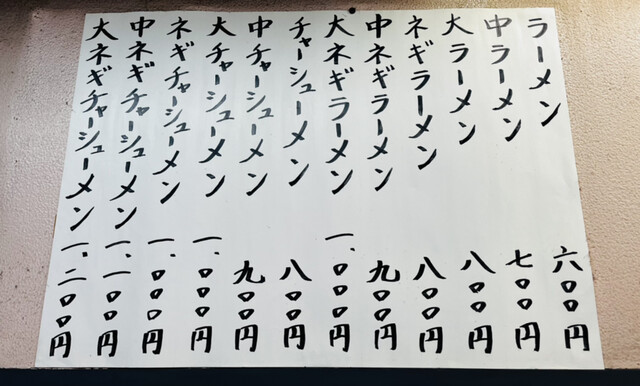 ラーメン 六〇〇円
中ラーメン 七〇〇円
大ラーメン 八〇〇円
ネギラーメン 八〇〇円
中ネギラーメン 九〇〇円
大ネギラーメン 一、〇〇〇円
チャーシューメン 八〇〇円
中チャーシューメン 九〇〇円
大チャーシューメン 一、〇〇〇円
ネギチャーシューメン 一、〇〇〇円
中ネギチャーシューメン 一、一〇〇円
大ネギチャーシューメン 一、二〇〇円